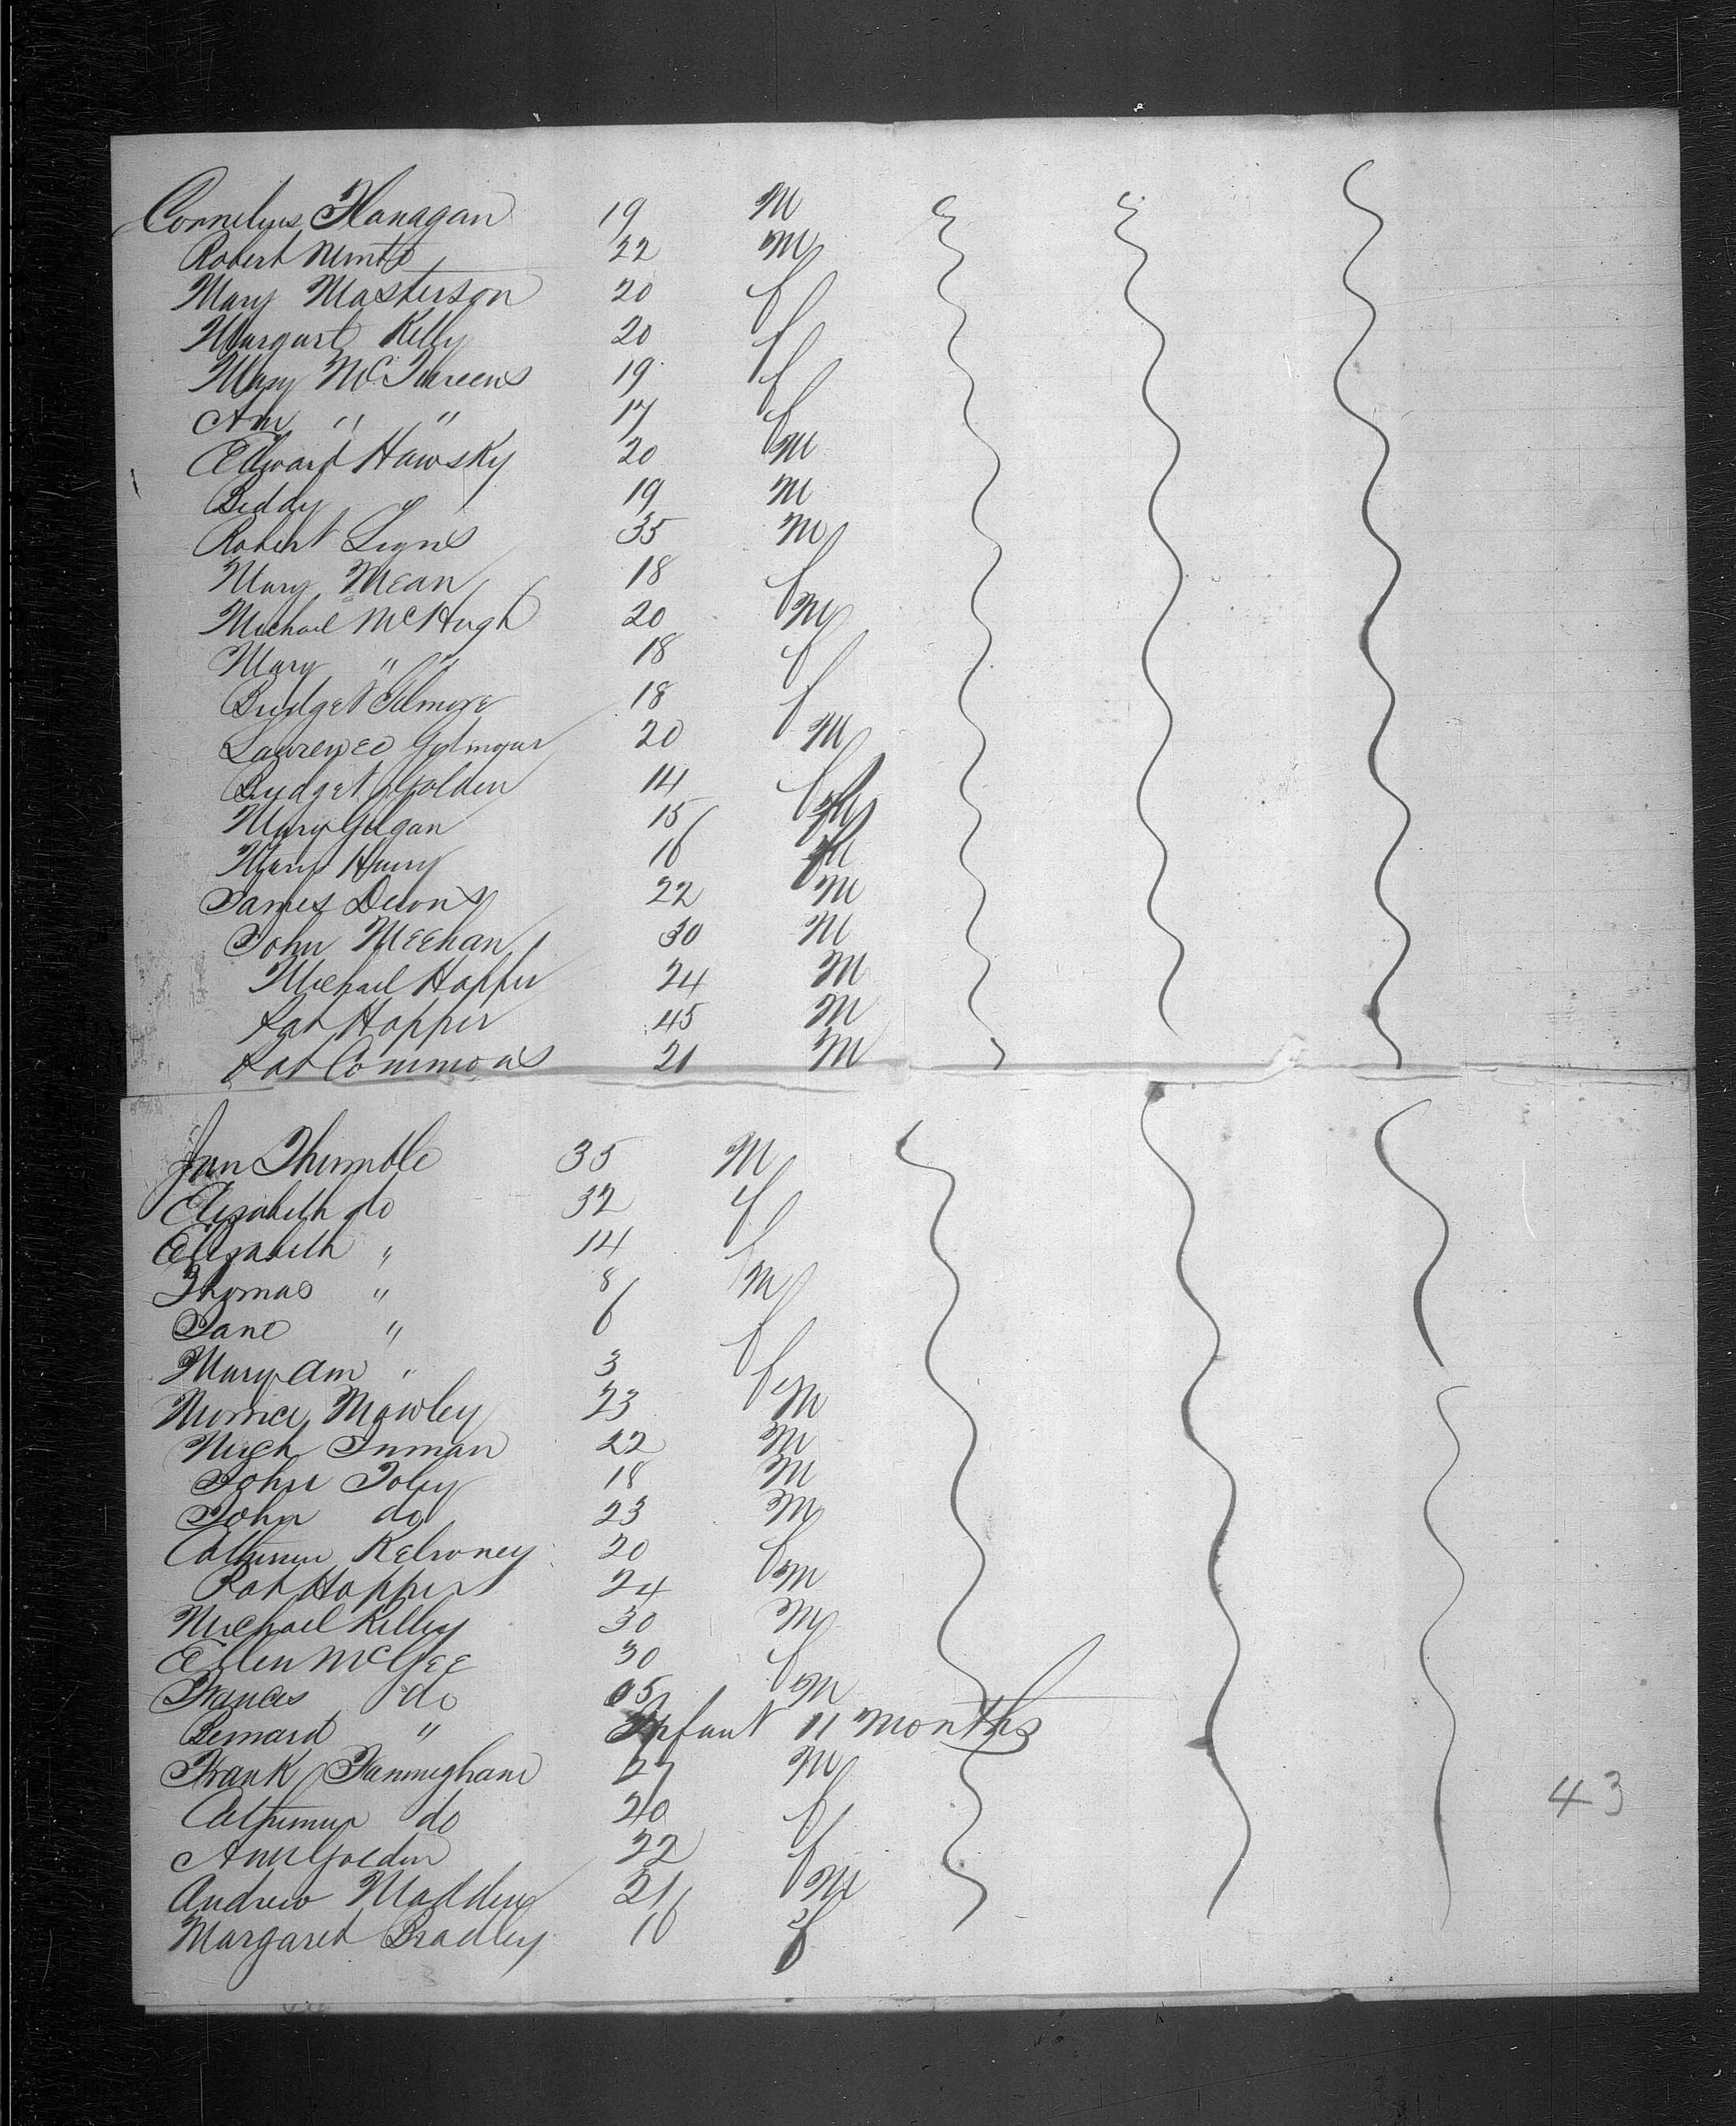 Cornelius Flanagan 19 M
Robert Minto 22 M
Mary Masterson 20 f
Margart Kelly 20 f
Mary 19 f
Ann " " 17 f
Edward Hawsky 20 M
Biddy " 19 M
Robert Lyns 35 M
Mary Mean 18 f
Michael McHugh 20 M
Mary " " 18 f
Bridget Gilmore 18 f
Lawrence 20 M
Bridget Golden 14 f
Mary Gilgan 15 f
Mary Henry 16 f
James 22 M
John Meehan 30 M
Michael Hopper 24 M
Pat Hopper 45 M
Pat Commons 21 M
Thimble 35 M
Elizabeth do 32 f
Elizabeth " 14 f
Thomas " 8 M
Jane " 6 f
Mary Ann " 3 f
Mowley 23 M
Hugh Inman 22 M
John Foley 18 M
John do 23 M
Kelroney 20 f
Pat Hopper 24 M
Michael Kelley 30 M
Ellen McGee 30 f
Frances do 05 M
Bernard " Infant 11 months
Frank 27 M
do 20 f
Ann Golden 22 f
Andrew Madden 21 M
Margaret Bradley 16 f
43